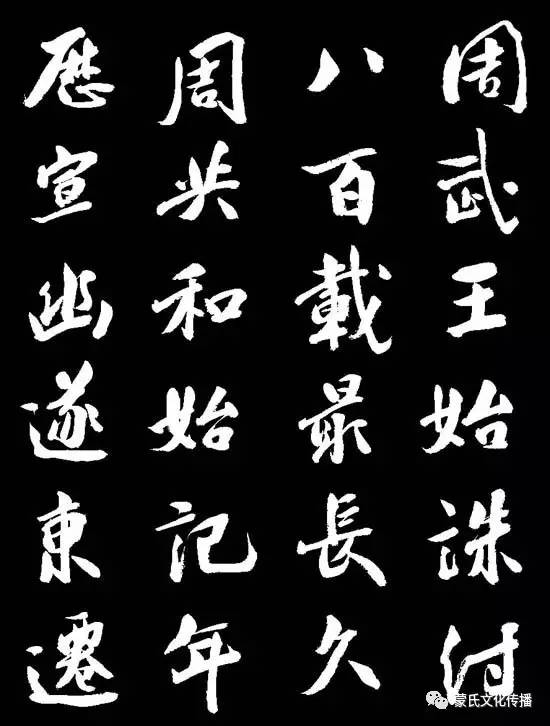 周武王始誅紂
八百載最長久
周共和始記年
歷宣幽遂東遷
蒙氏文化传播